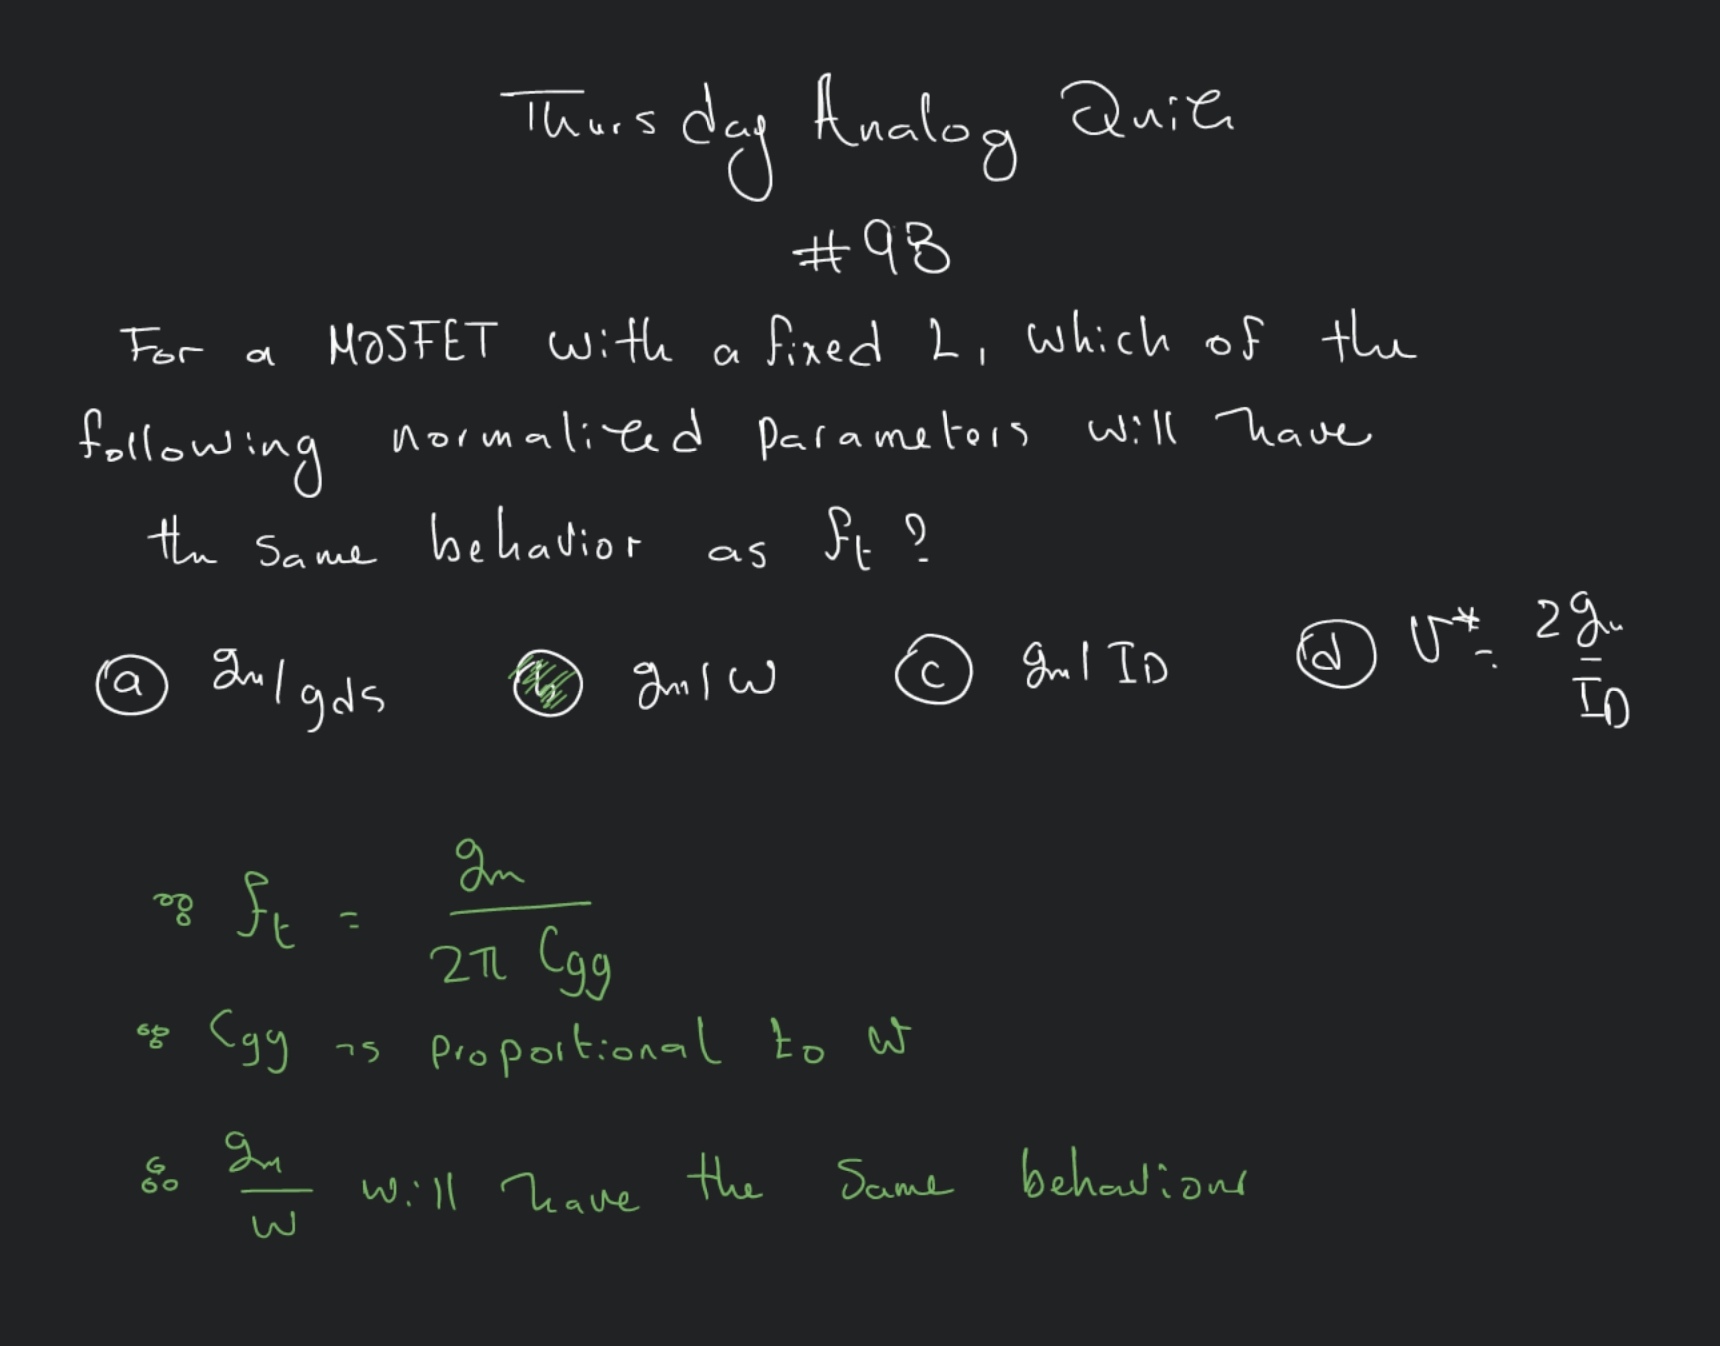 Thursday Analog Quiz
#98
For a MOSFET with a fixed L, which of the
following normalized parameters will have
the same behavior as ft ?
(a) gm/gds (b) gm/W (c) gm/ID (d) V* = 2gm/ID
∵ ft = gm / 2π Cgg
∵ Cgg is proportional to W
∴ gm/W will have the same behaviour